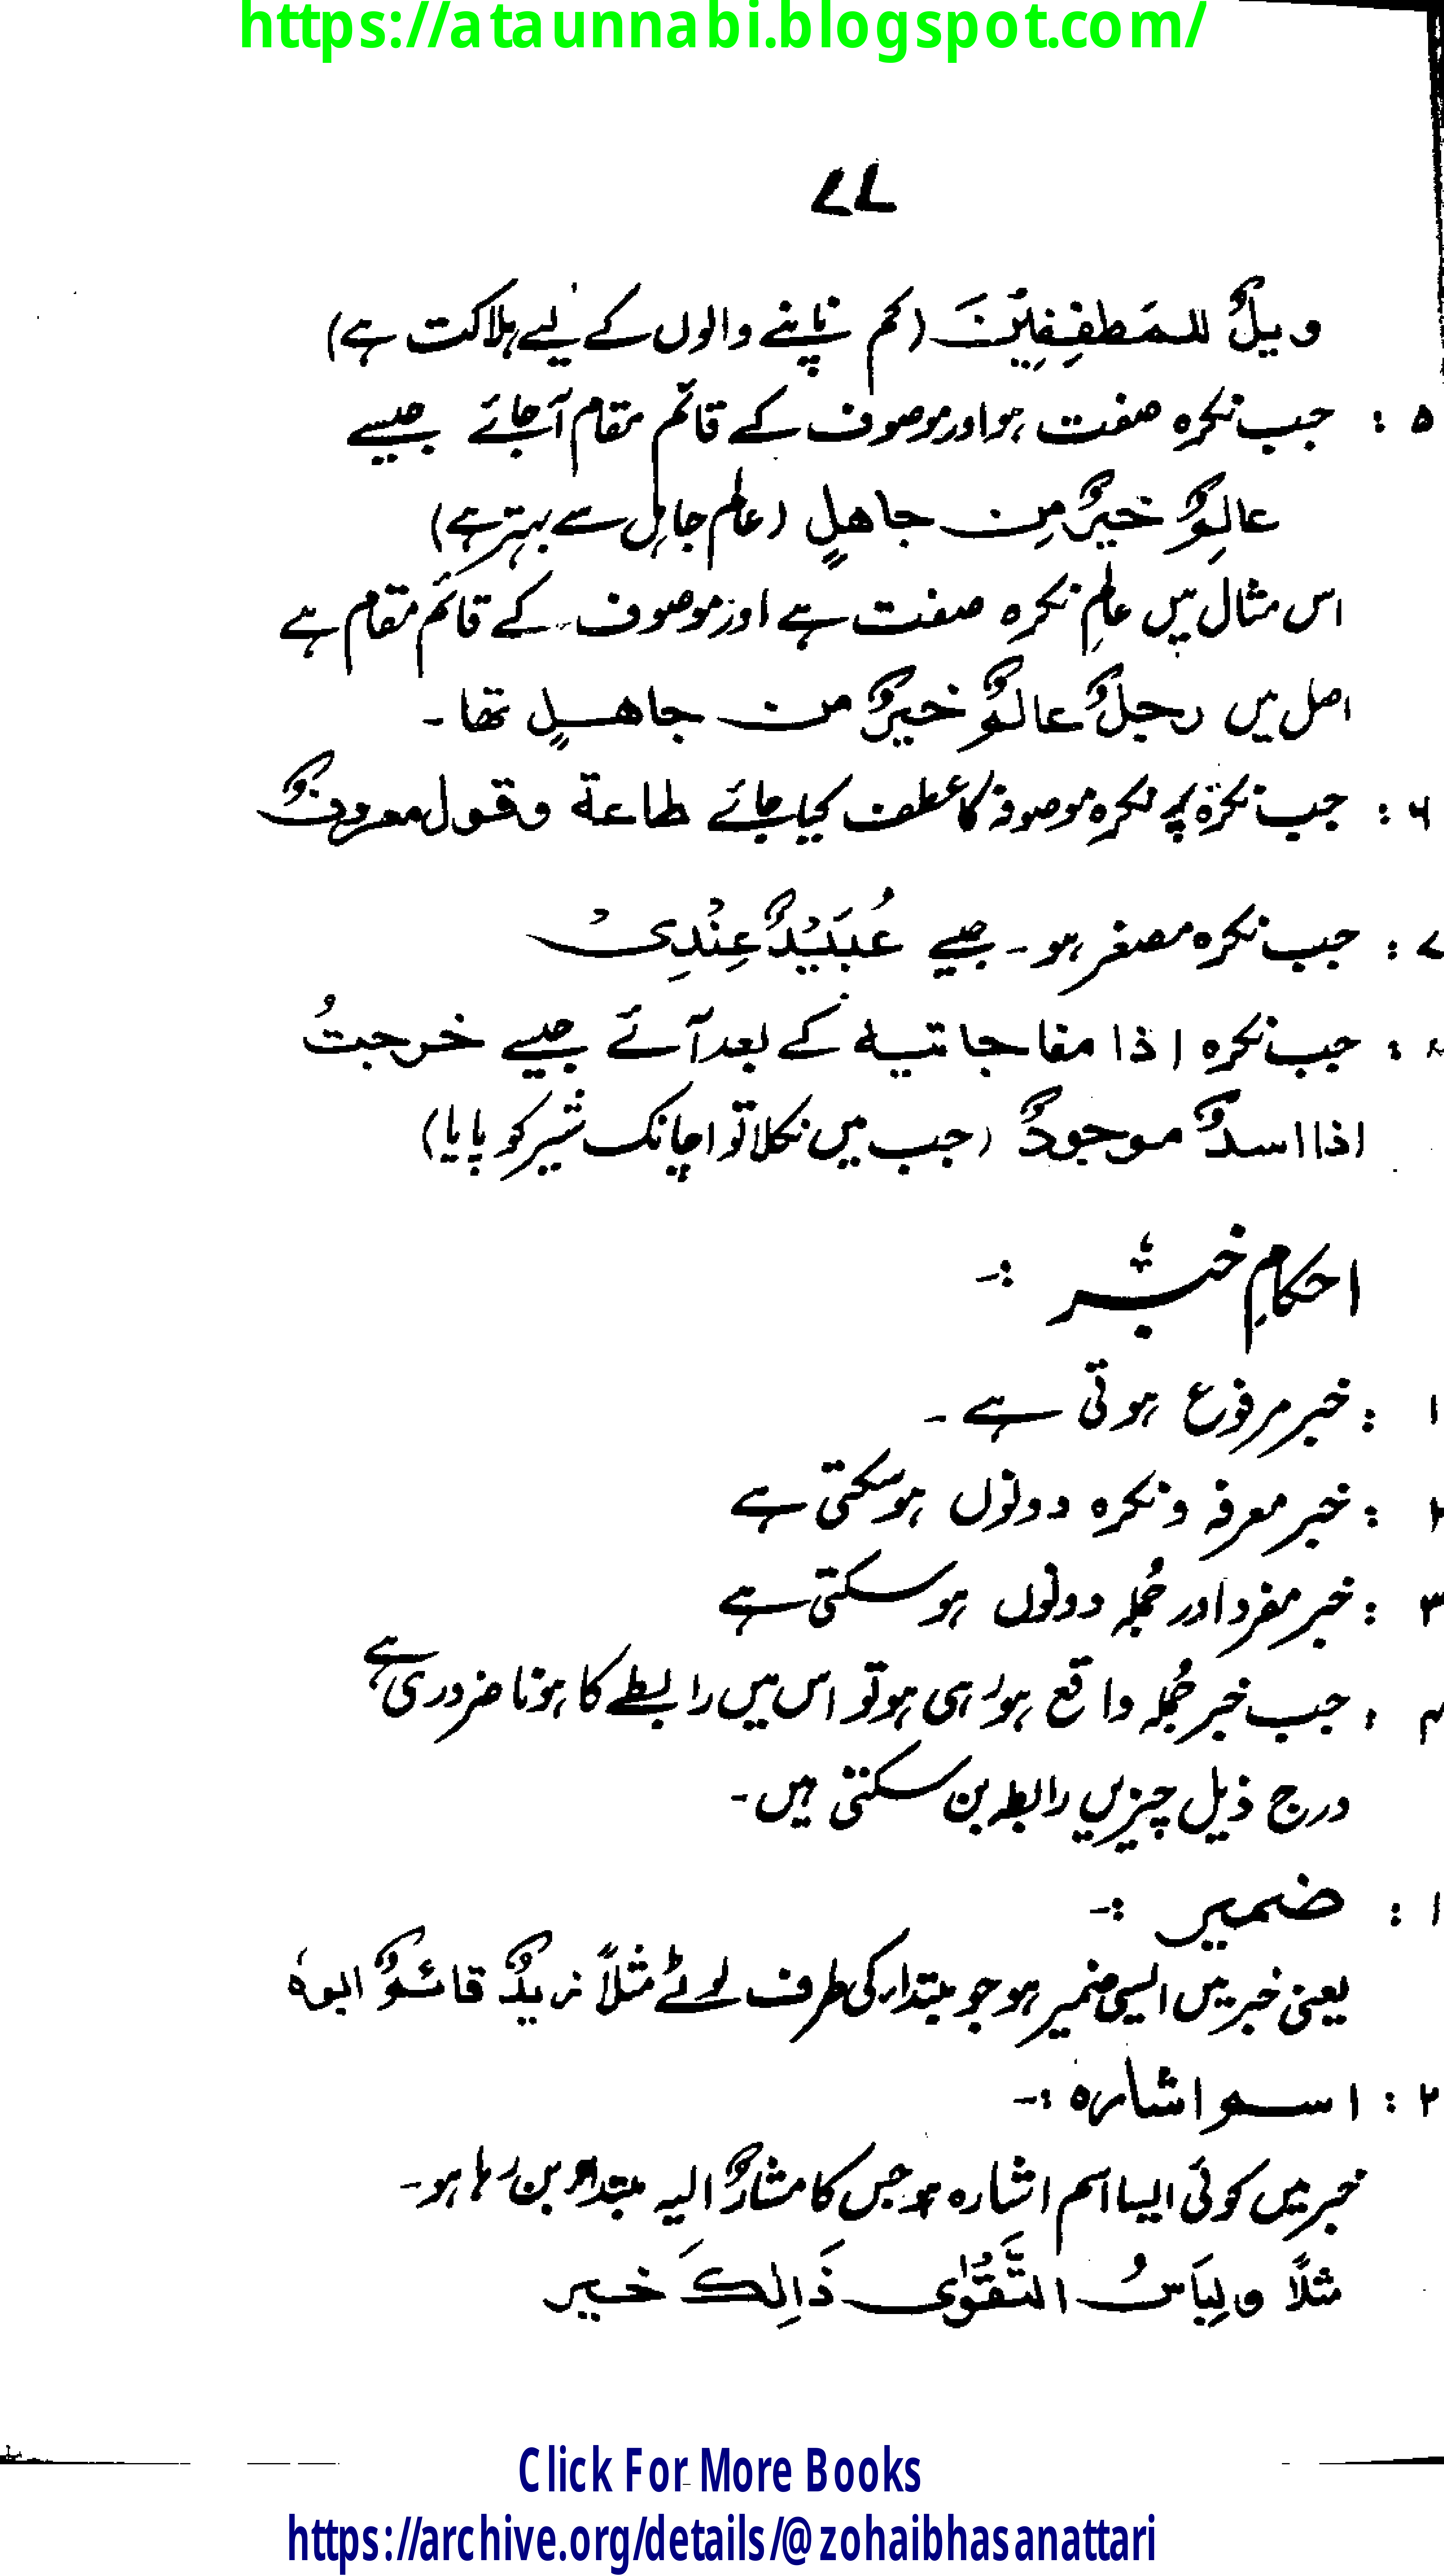 https://ataunnabi.blogspot.com/
۷۷
ویلٌ للمَطفِفِیْنَ (کم ناپنے والوں کے لیے ہلاکت ہے)
۵ : جب نکرہ صفت ہو اور موصوف کے قائم مقام آجائے جیسے
عالِمٌ خیرٌ مِن جاھلٍ (عالم جاہل سے بہتر ہے)
اس مثال میں عالمِ نکرہ صفت ہے اور موصوف کے قائم مقام ہے
اصل میں رجلٌ عالمٌ خیرٌ من جاھلٍ تھا ۔
۶ : جب نکرۃ پر نکرہ موصوفہ کا عطف کیا جائے طاعة وقول معروفٌ
۷ : جب نکرہ مصغر ہو ۔ جیسے عُبَیْدٌ عِنْدِیْ
۸ : جب نکرہ اذا مفاجاتیه کے بعد آئے جیسے خرجتُ
اذا اسدٌ موجودٌ (جب میں نکلا تو اچانک شیر کو پایا)
احکامِ خبر :-
۱ : خبر مرفوع ہوتی ہے ۔
۲ : خبر معرفہ و نکرہ دونوں ہو سکتی ہے
۳ : خبر مفرد اور جُملہ دونوں ہو سکتی ہے
۴ : جب خبر جُملہ واقع ہو رہی ہو تو اس میں رابطے کا ہونا ضروری ہے
درج ذیل چیزیں رابطہ بن سکتی ہیں ۔
۱ : ضمیر :-
یعنی خبر میں ایسی ضمیر ہو جو مبتداء کی طرف لوٹے مثلاً زیدٌ قائمٌ ابوہٗ
۲ : اسم اشارہ :-
خبر میں کوئی ایسا اسم اشارہ ہو جس کا مشارٌ الیہ مبتداء بن رہا ہو ۔
مثلاً ولِبَاسُ التَّقْوٰی ذَالِکَ خیر
Click For More Books
https://archive.org/details/@zohaibhasanattari